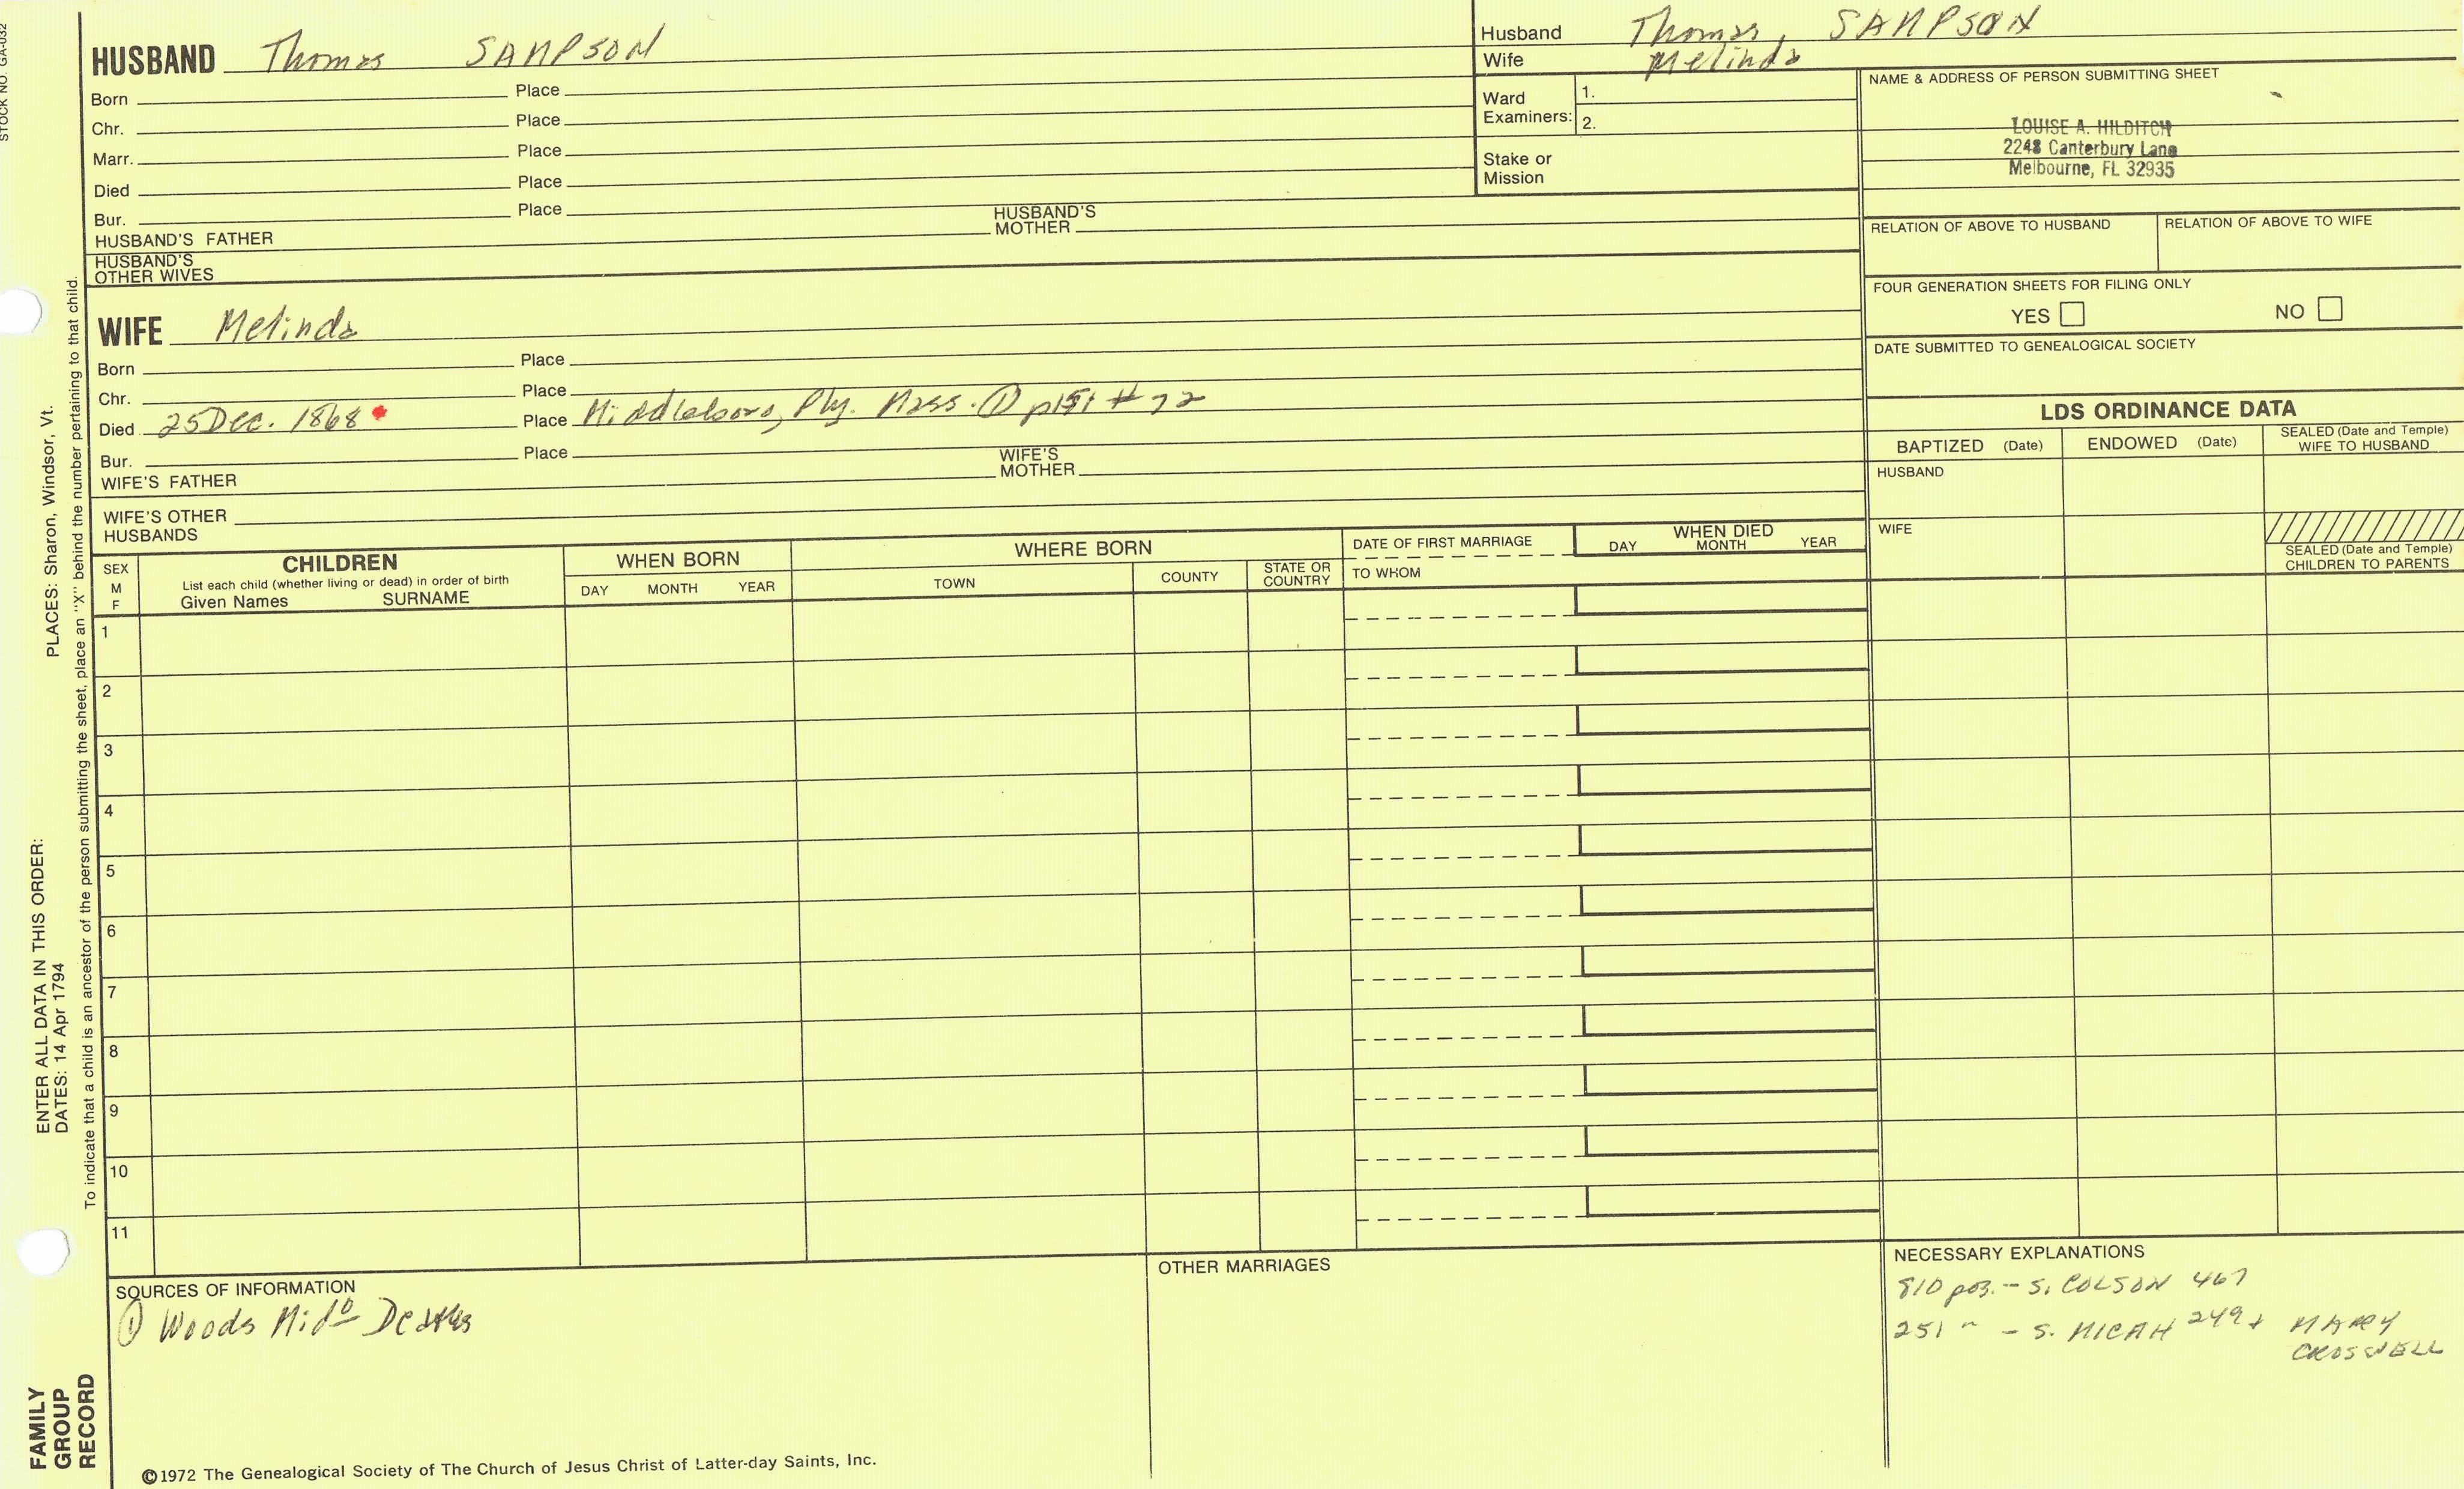 STOCK NO. GA-032
HUSBAND Thomas SAMPSON
Born Place
Chr. Place
Marr. Place
Died Place
Bur. Place
HUSBAND'S FATHER
HUSBAND'S MOTHER
HUSBAND'S OTHER WIVES
Husband Thomas, SAMPSON
Wife Melinda
Ward Examiners: 1.
2.
Stake or Mission
NAME & ADDRESS OF PERSON SUBMITTING SHEET
LOUISE A. HILDITCH
2248 Canterbury Lane
Melbourne, FL 32935
RELATION OF ABOVE TO HUSBAND
RELATION OF ABOVE TO WIFE
FOUR GENERATION SHEETS FOR FILING ONLY
YES NO
DATE SUBMITTED TO GENEALOGICAL SOCIETY
WIFE Melinda
Born Place
Chr. Place
Died 25 Dec. 1868 Place Middleboro, Ply. Mass. ① p151 # 72
Bur. Place
WIFE'S FATHER
WIFE'S MOTHER
WIFE'S OTHER HUSBANDS
LDS ORDINANCE DATA
BAPTIZED (Date) ENDOWED (Date) SEALED (Date and Temple) WIFE TO HUSBAND
HUSBAND
WIFE
SEALED (Date and Temple) CHILDREN TO PARENTS
SEX M F
CHILDREN
List each child (whether living or dead) in order of birth
Given Names SURNAME
WHEN BORN
DAY MONTH YEAR
WHERE BORN
TOWN COUNTY STATE OR COUNTRY
DATE OF FIRST MARRIAGE
TO WHOM
WHEN DIED
DAY MONTH YEAR
1
2
3
4
5
6
7
8
9
10
11
SOURCES OF INFORMATION
① Woods Mido Deaths
OTHER MARRIAGES
NECESSARY EXPLANATIONS
810 pos. - S. COLSON 467
251 " - S. MICAH 249 + MARY
CROSWELL
©1972 The Genealogical Society of The Church of Jesus Christ of Latter-day Saints, Inc.
FAMILY GROUP RECORD
ENTER ALL DATA IN THIS ORDER:
DATES: 14 Apr 1794
PLACES: Sharon, Windsor, Vt.
To indicate that a child is an ancestor of the person submitting the sheet, place an "X" behind the number pertaining to that child.